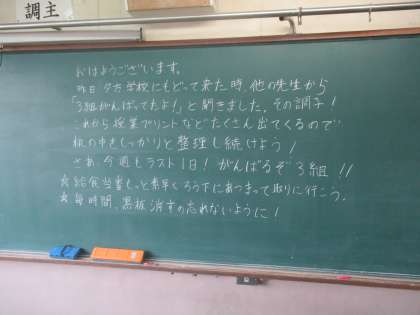 調主
おはようございます。
昨日夕方学校にもどって来た時、他の先生から
「3組がんばってたよ!」と聞きました。その調子!
これから授業プリントなどたくさん出てくるので
机の中をしっかりと整理し続けよう!
さあ、今週もラスト1日!がんばるぞ3組!!
☆給食当番もっと素早くろう下にあつまって取りに行こう。
☆毎時間、黒板消すの忘れないように!